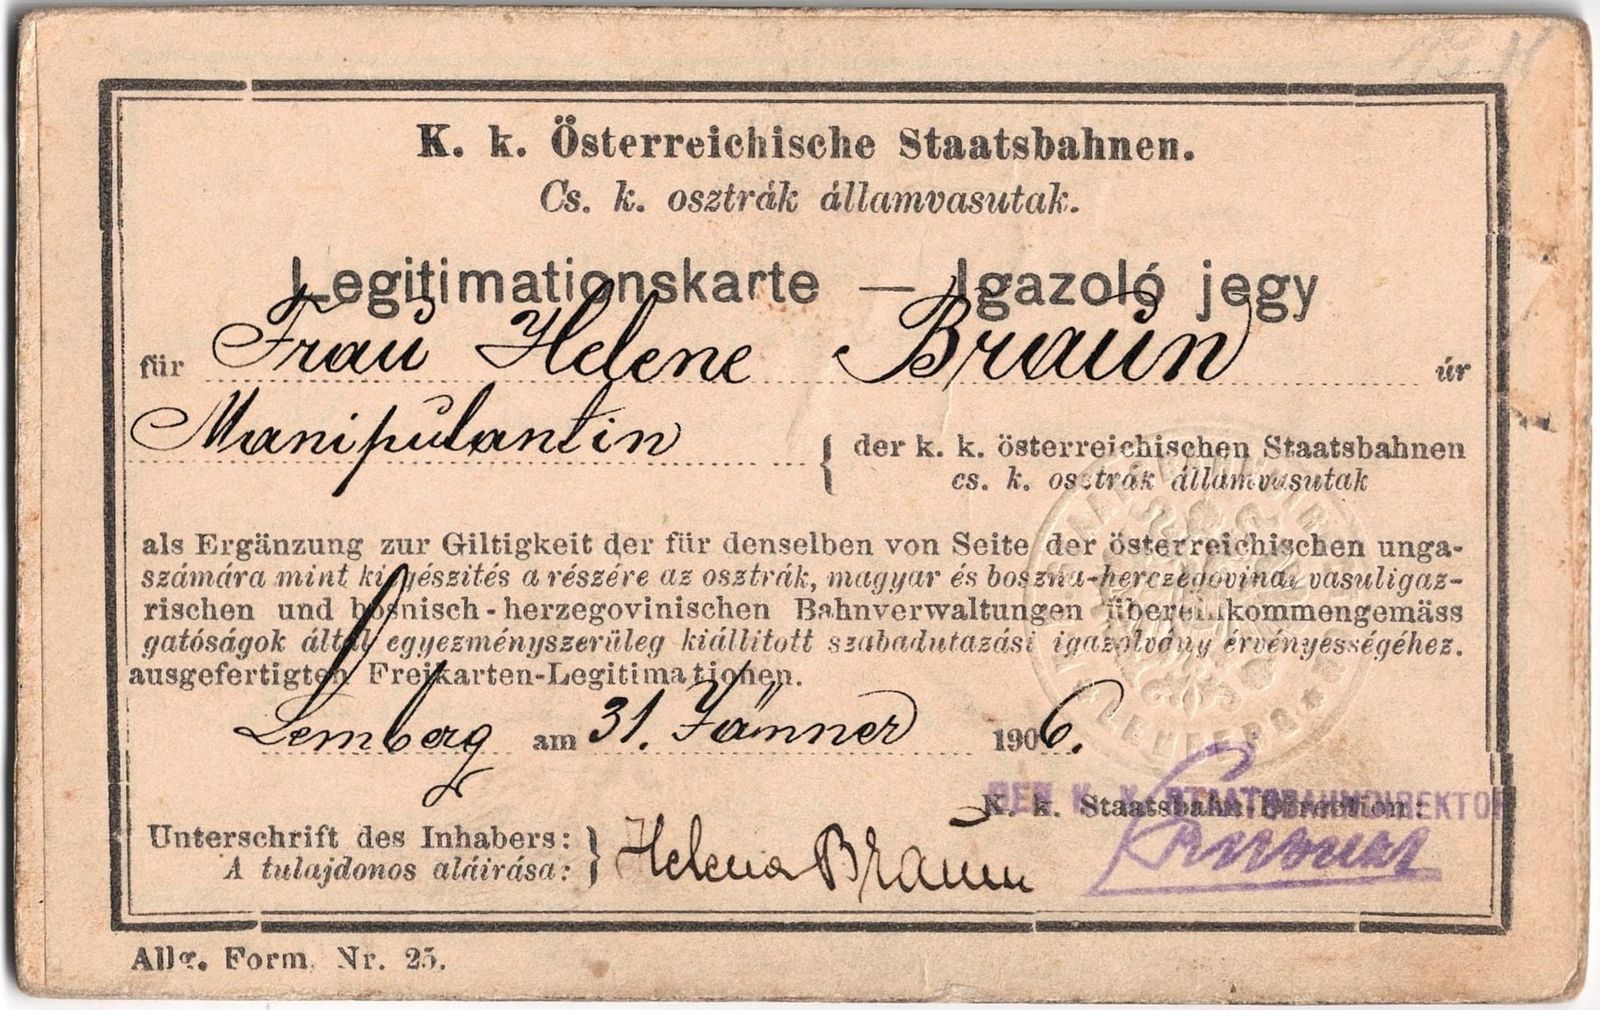 K. k. Österreichische Staatsbahnen.
Cs. k. osztrák államvasutak.
Legitimationskarte — Igazoló jegy
für Frau Helene Braun úr
Manipulantin { der k. k. österreichischen Staatsbahnen
cs. k. osztrák államvasutak
als Ergänzung zur Giltigkeit der für denselben von Seite der österreichischen unga-
számára mint kiegészités a részére az osztrák, magyar és boszna-herczegovinai vasutigaz-
rischen und bosnisch-herzegovinischen Bahnverwaltungen übereinkommengemäss
gatóságok által egyezményszerüleg kiállitott szabadutazási igazolvány érvényességéhez.
ausgefertigten Freikarten-Legitimationen.
Lemberg am 31. Jänner 1906.
DER K. K. STAATSBAHNDIREKTOR
K. k. Staatsbahn-Direction:
Unterschrift des Inhabers: } Helena Braun
A tulajdonos aláirása:
Allg. Form. Nr. 25.
LEMBERG